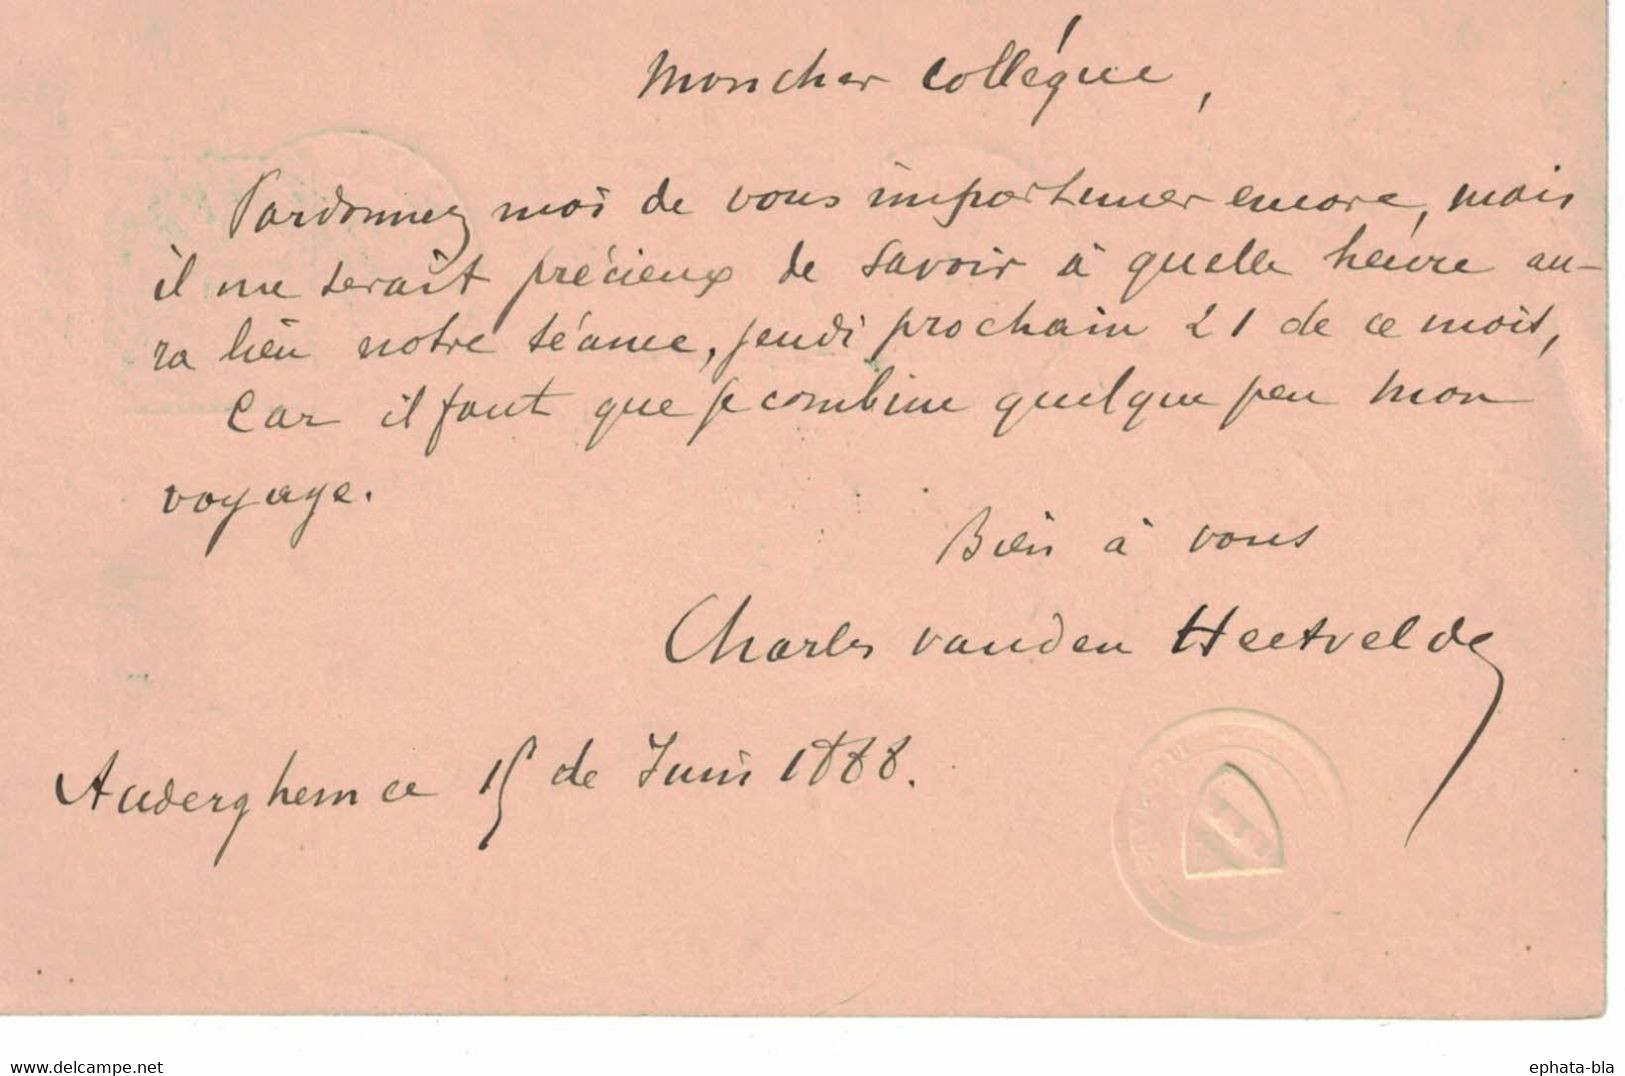 Mon cher Collégue,
Pardonnez moi de vous importuner encore, mais
il me serait précieux de savoir à quelle heure au-
ra lieu notre séance, jeudi prochain 21 de ce mois,
Car il faut que je combine quelque peu mon
voyage.
Bien à vous
Charles vanden Heetvelde
Auderghem ce 15 de Juin 1888.
www.delcampe.net
ephata-bla